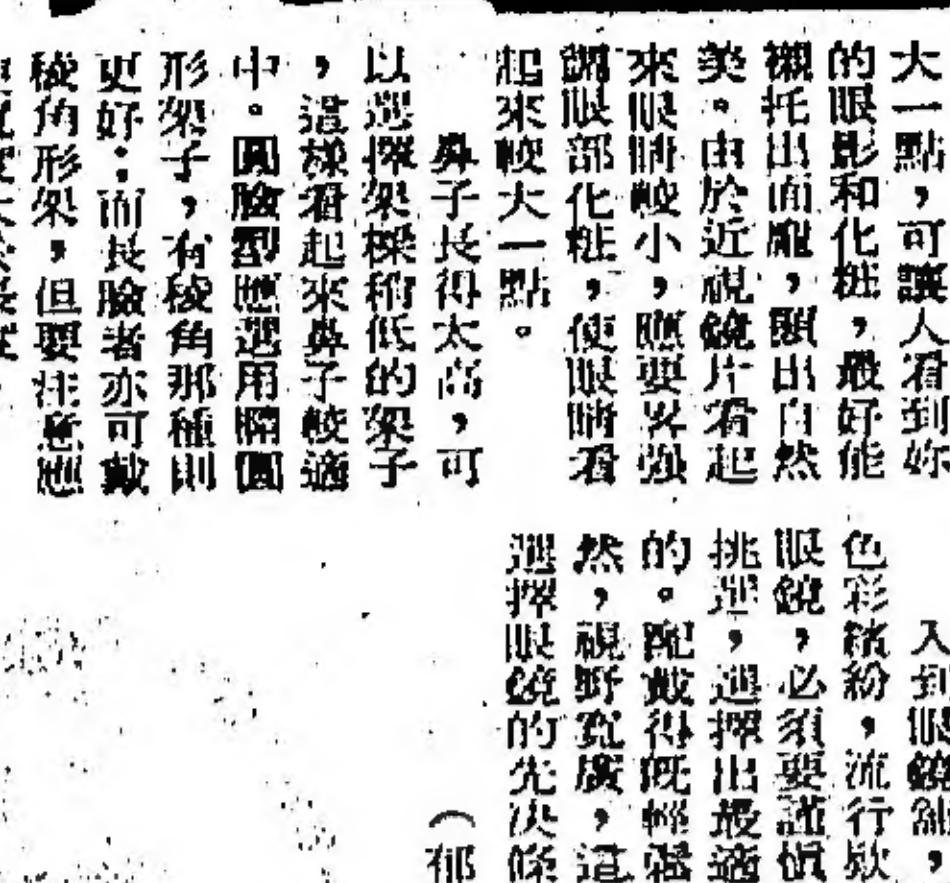 大一點，可讓人看到妳
的眼影和化粧，最好能
襯托出面龐，顯出自然
美。由於近視鏡片看起
來眼睛較小，應要畧強
調眼部化粧，使眼睛看
起來較大一點。
鼻子長得太高，可
以選擇架樑稍低的架子
，這樣看起來鼻子較適
中。圓臉型應選用橢圓
形架子，有稜角那種則
更好；而長臉者亦可戴
稜角形架，但要注意應
入到眼鏡舖，
色彩繽紛，流行欵
眼鏡，必須要謹慎
挑選，選擇出最適
的。配戴得既輕
然，視野寬廣，這
選擇眼鏡的先決條
（郁